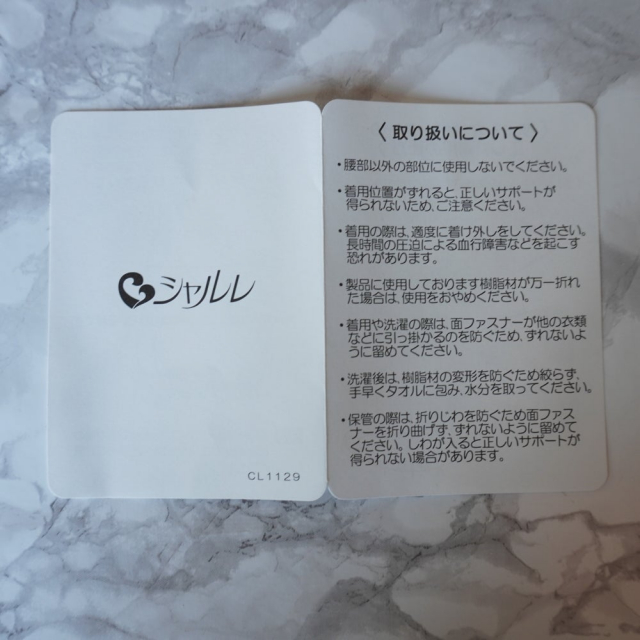 シャルレ
CL1129
〈 取り扱いについて 〉
・腰部以外の部位に使用しないでください。
・着用位置がずれると、正しいサポートが
得られないため、ご注意ください。
・着用の際は、適度に着け外しをしてください。
長時間の圧迫による血行障害などを起こす
恐れがあります。
・製品に使用しております樹脂材が万一折れ
た場合は、使用をおやめください。
・着用や洗濯の際は、面ファスナーが他の衣類
などに引っ掛かるのを防ぐため、ずれないよ
うに留めてください。
・洗濯後は、樹脂材の変形を防ぐため絞らず、
手早くタオルに包み、水分を取ってください。
・保管の際は、折りじわを防ぐため面ファス
ナーを折り曲げず、ずれないように留めて
ください。しわが入ると正しいサポートが
得られない場合があります。